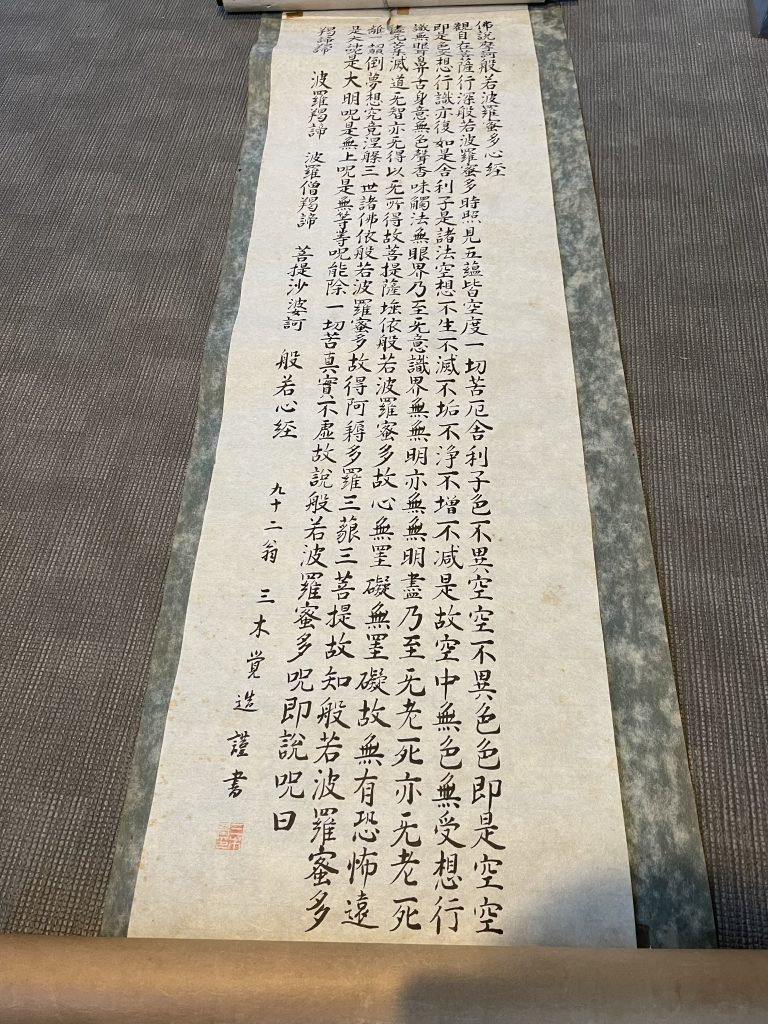 佛説摩訶般若波羅蜜多心経
観自在菩薩行深般若波羅蜜多時照見五蘊皆空度一切苦厄舎利子色不異空空不異色色即是空空
即是色受想行識亦復如是舎利子是諸法空想不生不滅不垢不浄不增不减是故空中無色無受想行
識無眼耳鼻舌身意無色聲香味觸法無眼界乃至无意識界無無明亦無無明盡乃至无老死亦无老死
盡无苦集滅道无智亦无得以无所得故菩提薩埵依般若波羅蜜多故心無罣礙無罣礙故無有恐怖遠
離一切顛倒夢想究竟涅槃三世諸佛依般若波羅蜜多故得阿耨多羅三藐三菩提故知般若波羅蜜多
是大神呪是大明呪是無上呪是無等等呪能除一切苦真實不虚故說般若波羅蜜多呪即說呪曰
羯諦羯諦 波羅羯諦 波羅僧羯諦 菩提沙婆訶 般若心経
九十二翁 三木覚造 謹書